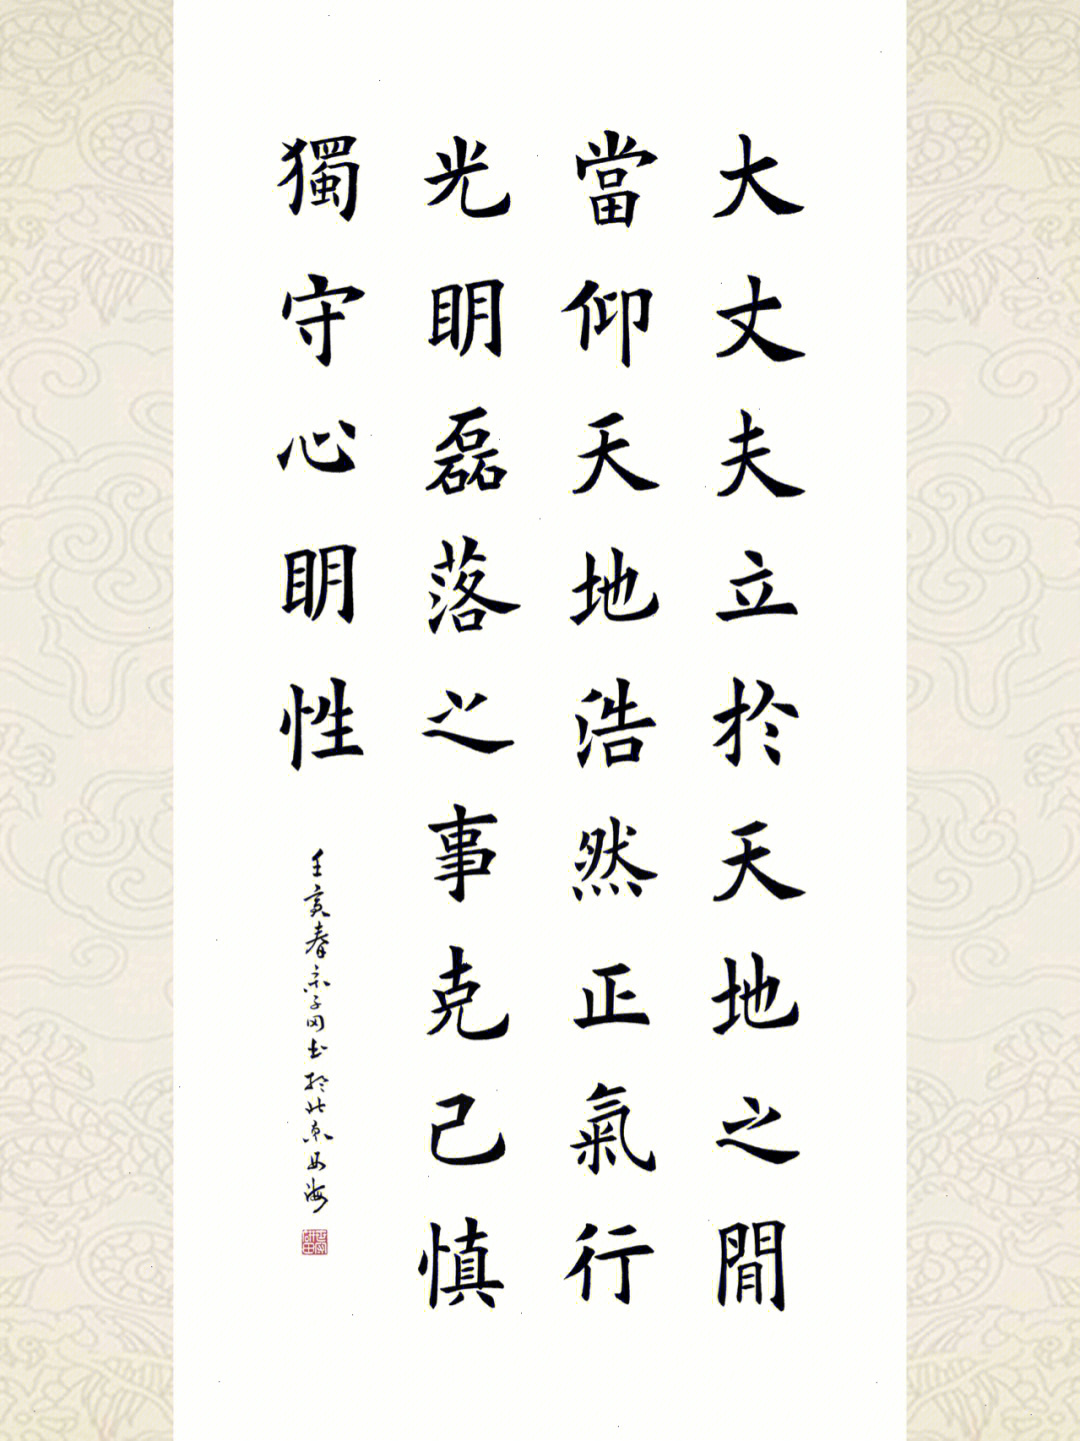 大丈夫立於天地之間
當仰天地浩然正氣行
光明磊落之事克己慎
獨守心明性
壬寅春宗子冈书於北京